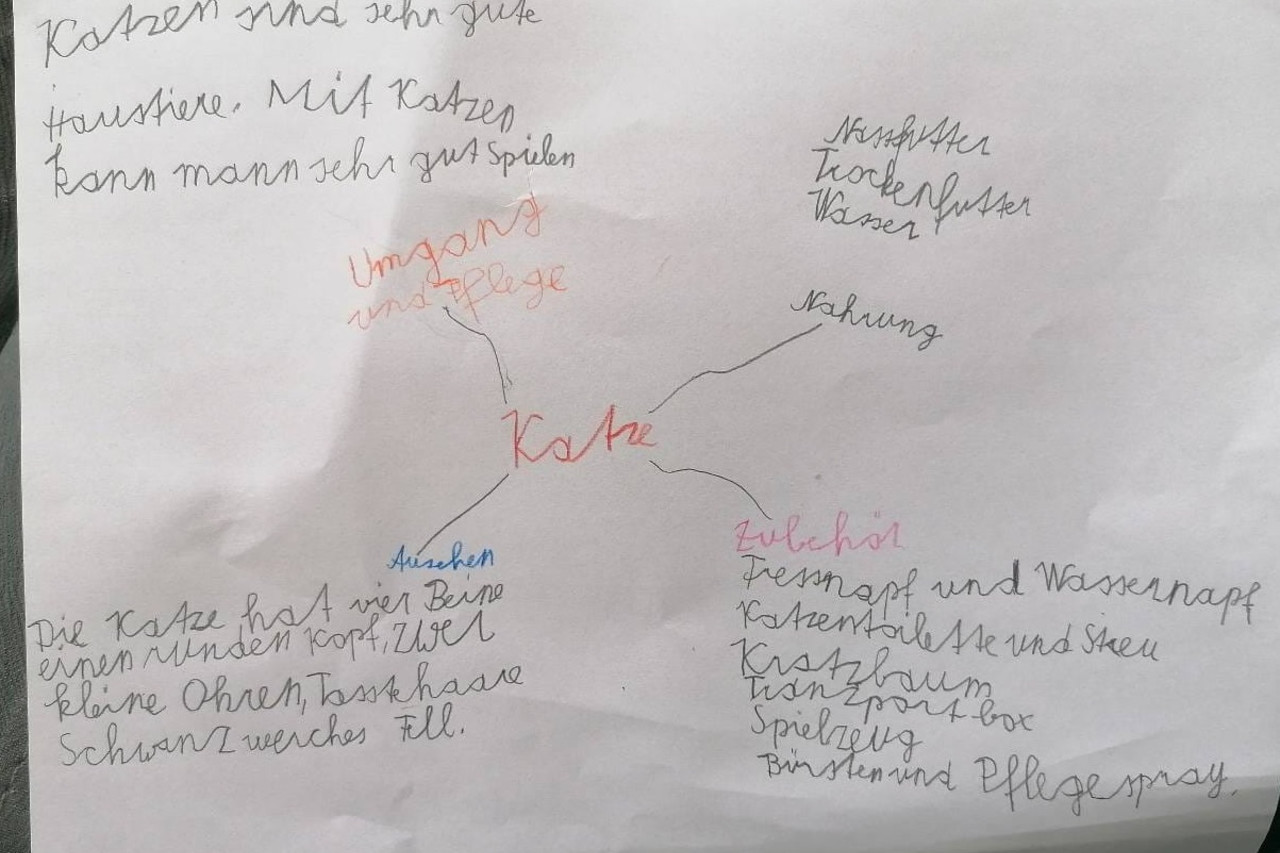 Katzen sind sehr gute
Haustiere. Mit Katzen
kann mann sehr gut Spielen
Umgang
und Pflege
Nassfutter
Trockenfutter
Wasser
Nahrung
Katze
Aussehen
Die Katze hat vier Beine
einen runden Kopf, zwei
kleine Ohren, Tasthaare
Schwanz weiches Fell.
Zubehör
Fressnapf und Wassernapf
Katzentoilette und Streu
Kratzbaum
Tranzportbox
Spielzeug
Bürsten und Pflegespray.